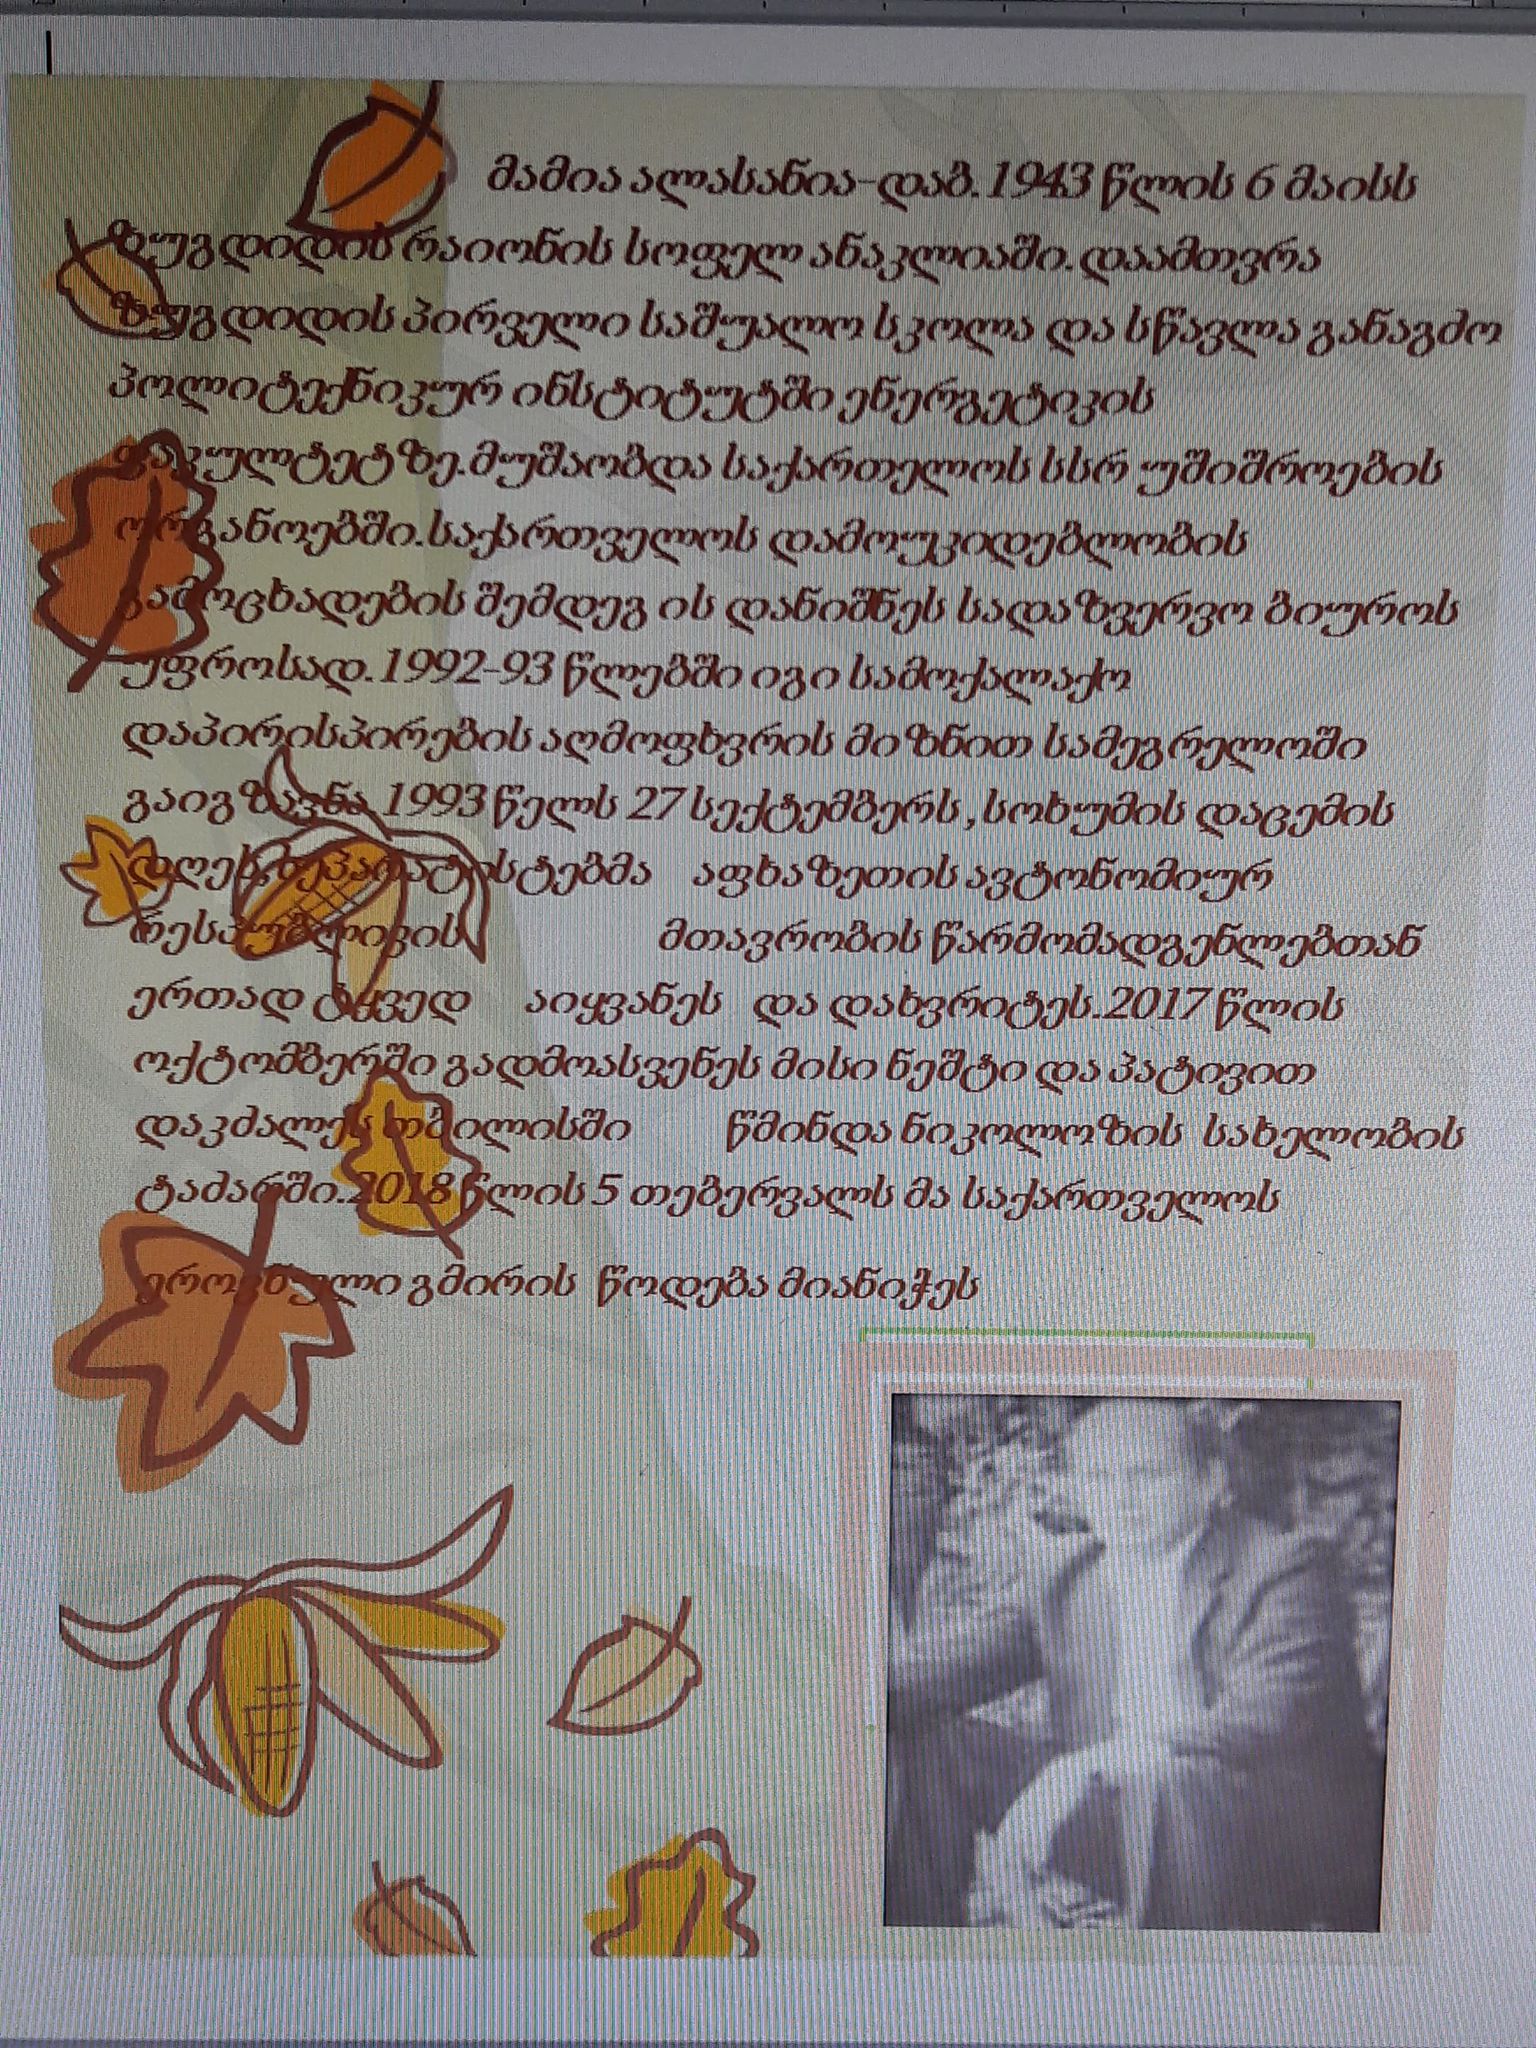 მამია ალასანია-დაბ.1943 წლის 6 მაისს
ზუგდიდის რაიონის სოფელ ანაკლიაში.დაამთვრა
ზუგდიდის პირველი საშუალო სკოლა და სწავლა განაგძო
პოლიტექნიკურ ინსტიტუტში ენერგეტიკის
ფაკულტეტზე.მუშაობდა საქართელოს სსრ უშიშროების
ორგანოებში.საქართველოს დამოუკიდებლობის
გამოცხადების შემდეგ ის დანიშნეს სადაზვერვო ბიუროს
უფროსად.1992-93 წლებში იგი სამოქალაქო
დაპირისპირების აღმოფხვრის მიზნით სამეგრელოში
გაიგზავნა.1993 წელს 27 სექტემბერს,სოხუმის დაცემის
დღეს,სეპარატისტებმა აფხაზეთის ავტონომიურ
რესპუბლიკის მთავრობის წარმომადგენლებთან
ერთად ტყვედ აიყვანეს და დახვრიტეს.2017 წლის
ოქტომბერში გადმოასვენეს მისი ნეშტი და პატივით
დაკძალეს თბილისში წმინდა ნიკოლოზის სახელობის
ტაძარში.2018 წლის 5 თებერვალს მა საქართველოს
ეროვნული გმირის წოდება მიანიჭეს